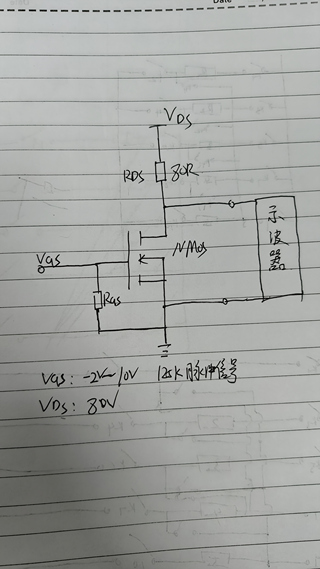 Date
VDS
RDS 80R
示波器
NMos
Vgs
Rgs
Vgs: -2V~10V 125K 脉冲信号
VDS: 80V